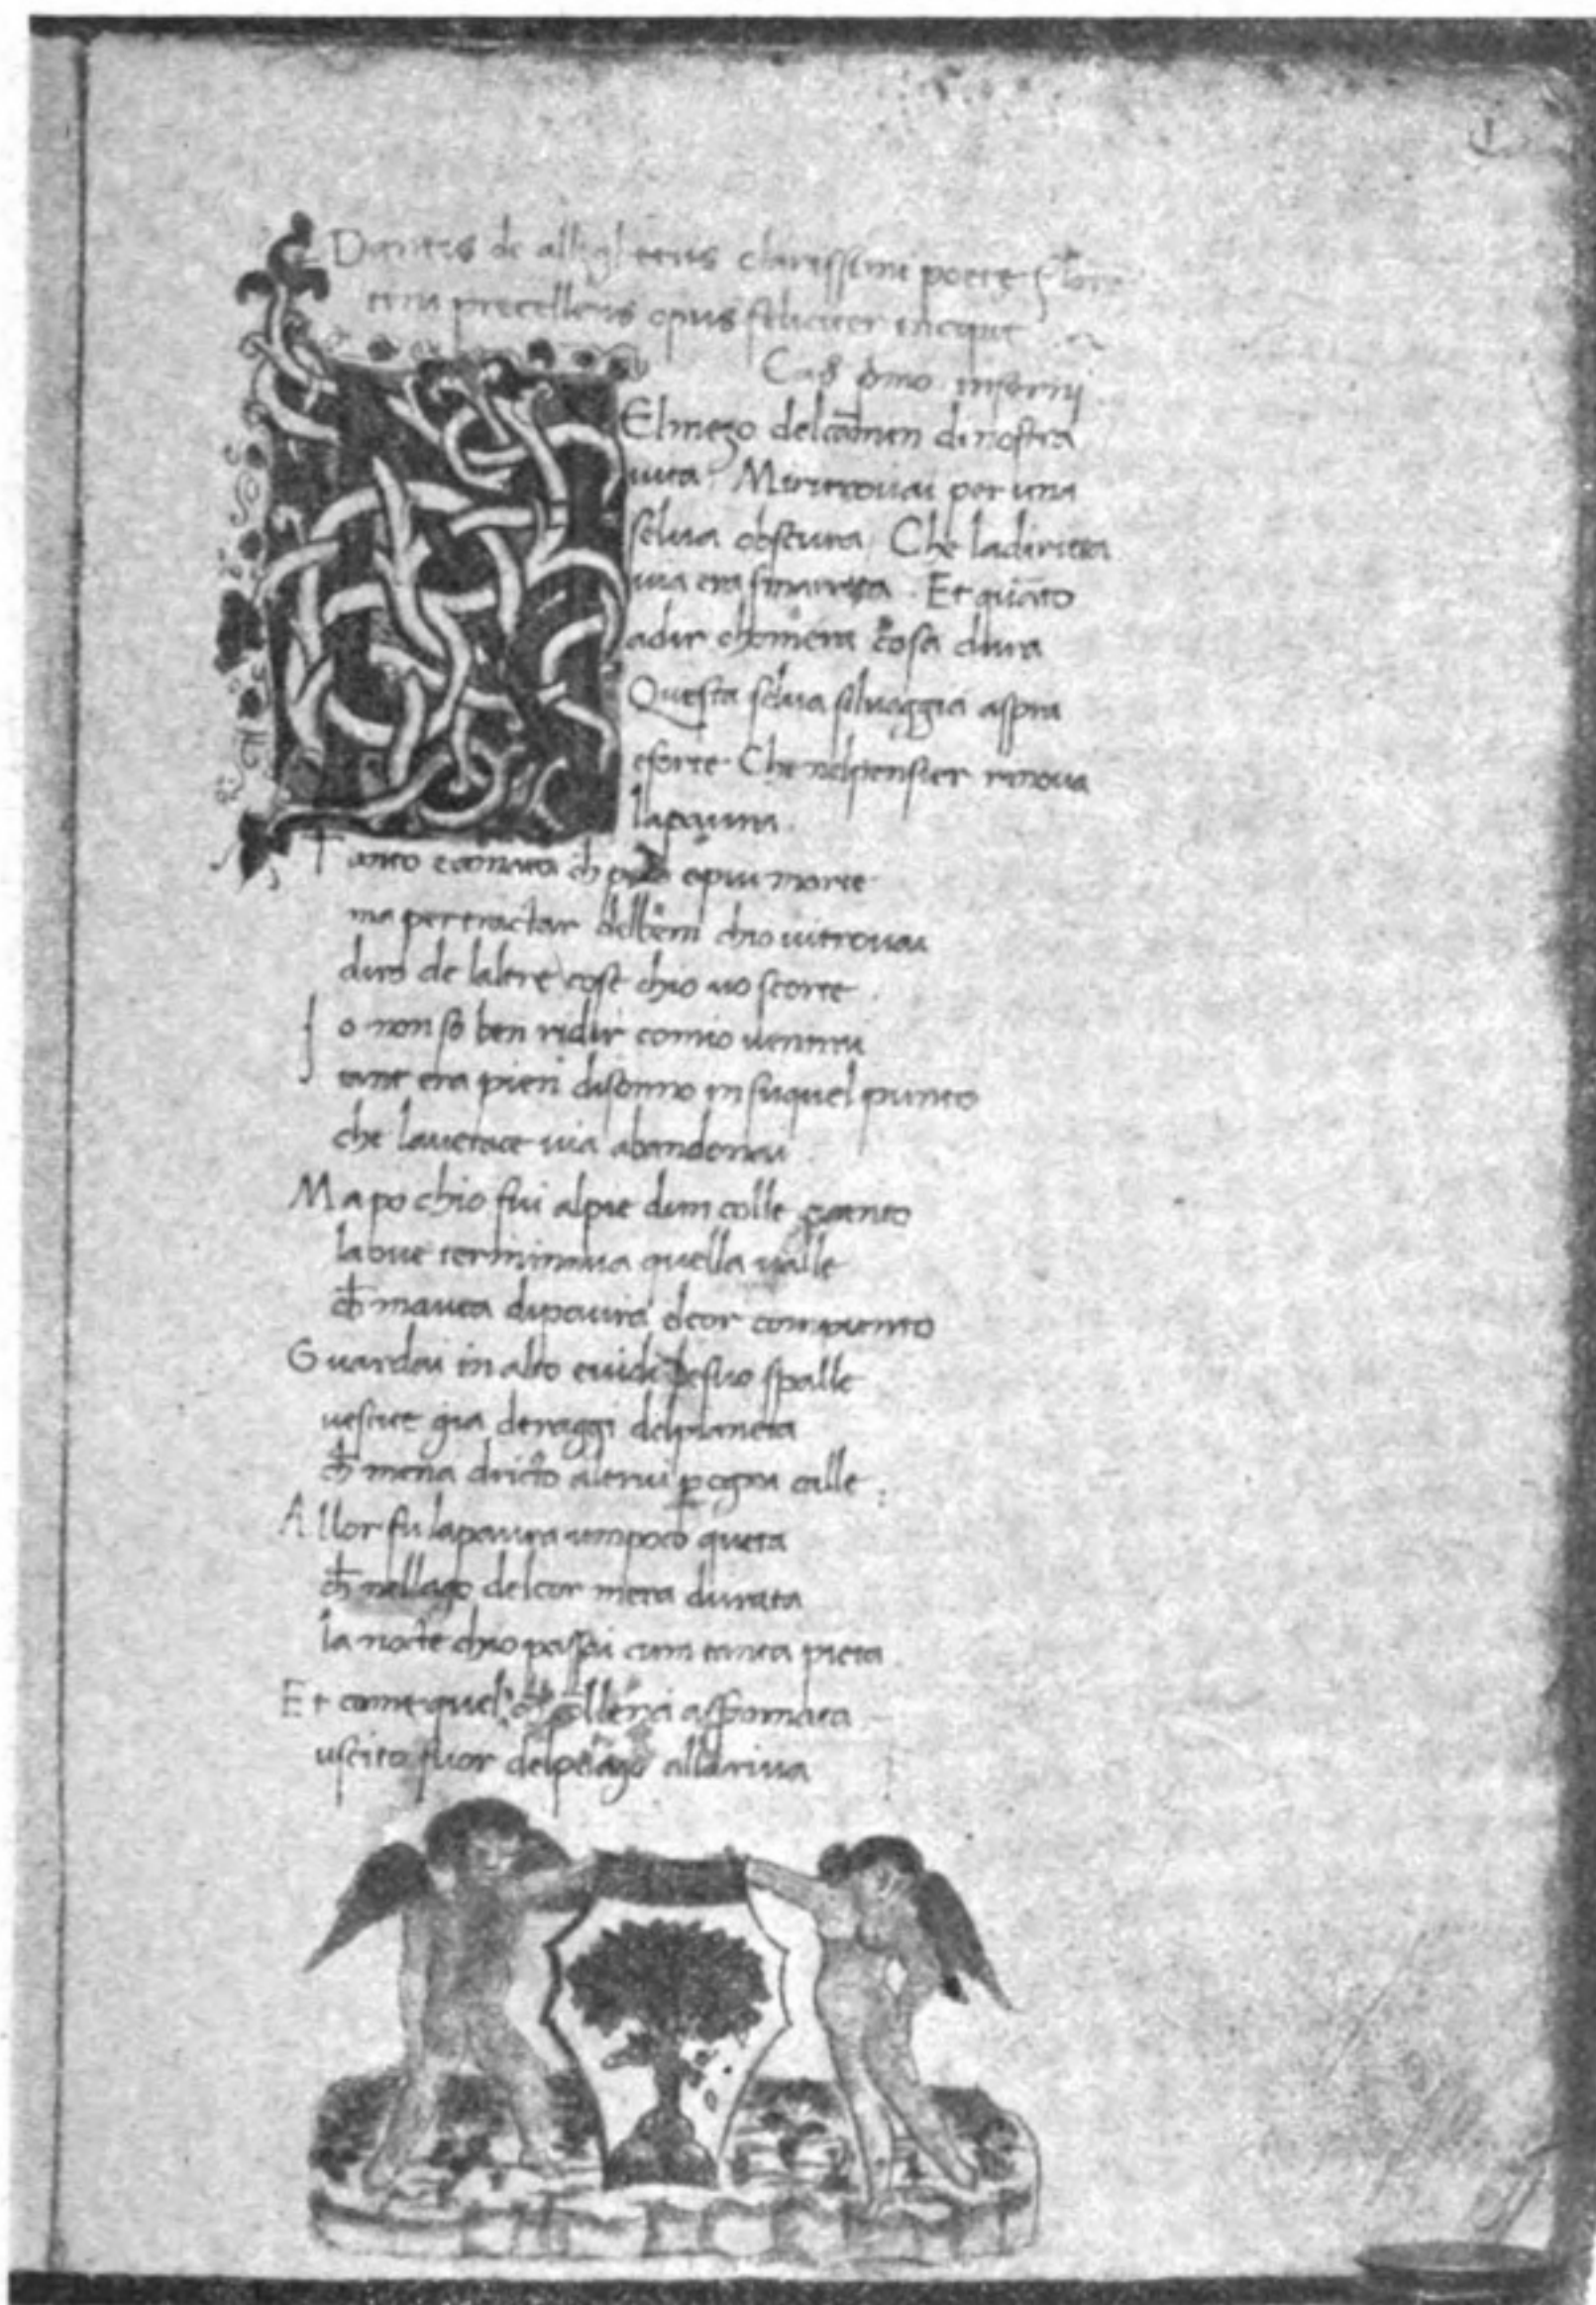 Dantis de allighieriis clarissimi poete
precellens opus feliciter incipit
primo inferni
Elmezo delcāmin di nostra
uita. Miritrouai per una
selua obscura. Che ladiritta
uia era smarrita. Et quāto
adir chomera cosa dura
Questa selua seluaggia aspra
eforte. Che nelpensier rinoua
lapaura.
Tanto e amara ch poco epiu morte
ma pertractar delben chio uitrouai
diro de laltre cose chio uo scorte.
Io non so ben ridir comio uentrai
tant era pien disonno in suquel punto
che lauerace uia abandonai.
Ma po chio fui alpie dun colle gionto
laoue terminaua quella ualle
ch mauea dipaura elcor compunto
Guardai in alto euidi lesuo spalle
uestite gia deraggi delpianeta
ch mena dricto altrui ꝑ ogni calle:
Allor fu lapaura umpoco queta
ch nellago delcor mera durata
la nocte chio passai cum tanta pieta.
Et come quel ch lena affannata
uscito fuor delpelago allariua